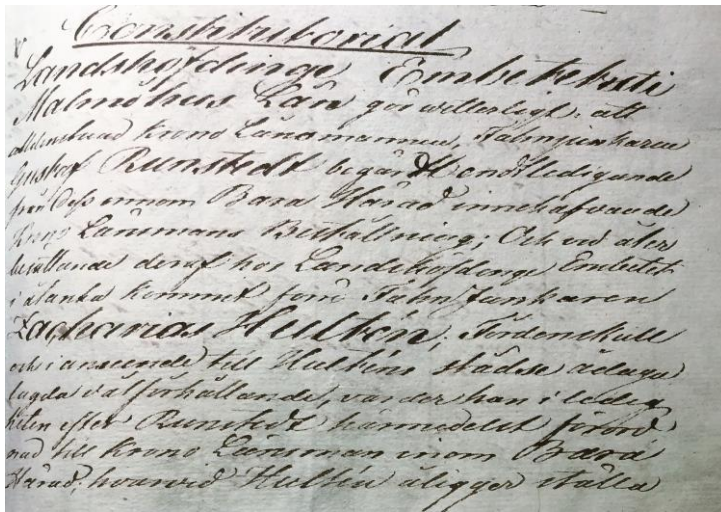 Constitutorial
Landshöfdinge Embetet uti
Malmöhus Län gör witterligt: att
alldenstund Krono Länsmannen, Fahnjunkaren
Runstedt begärt Entledigande
från Dess innom Bara Härad innehafvande
Krono Länsmans Beställning; Och vid åter
besättande deraf hos Landshöfdinge Embetet
i åtanka kommit förre Fahnjunkaren
Zacharias Hultén; Fördenskull
och i anseende till Hulténs städse ådaga
lagda välförhållande, varder han i ledig
heten efter Runstedt härmedelst förord
nad till Krono Länsman inom Bara
Härad; hvarvid Hultén åligger ställa